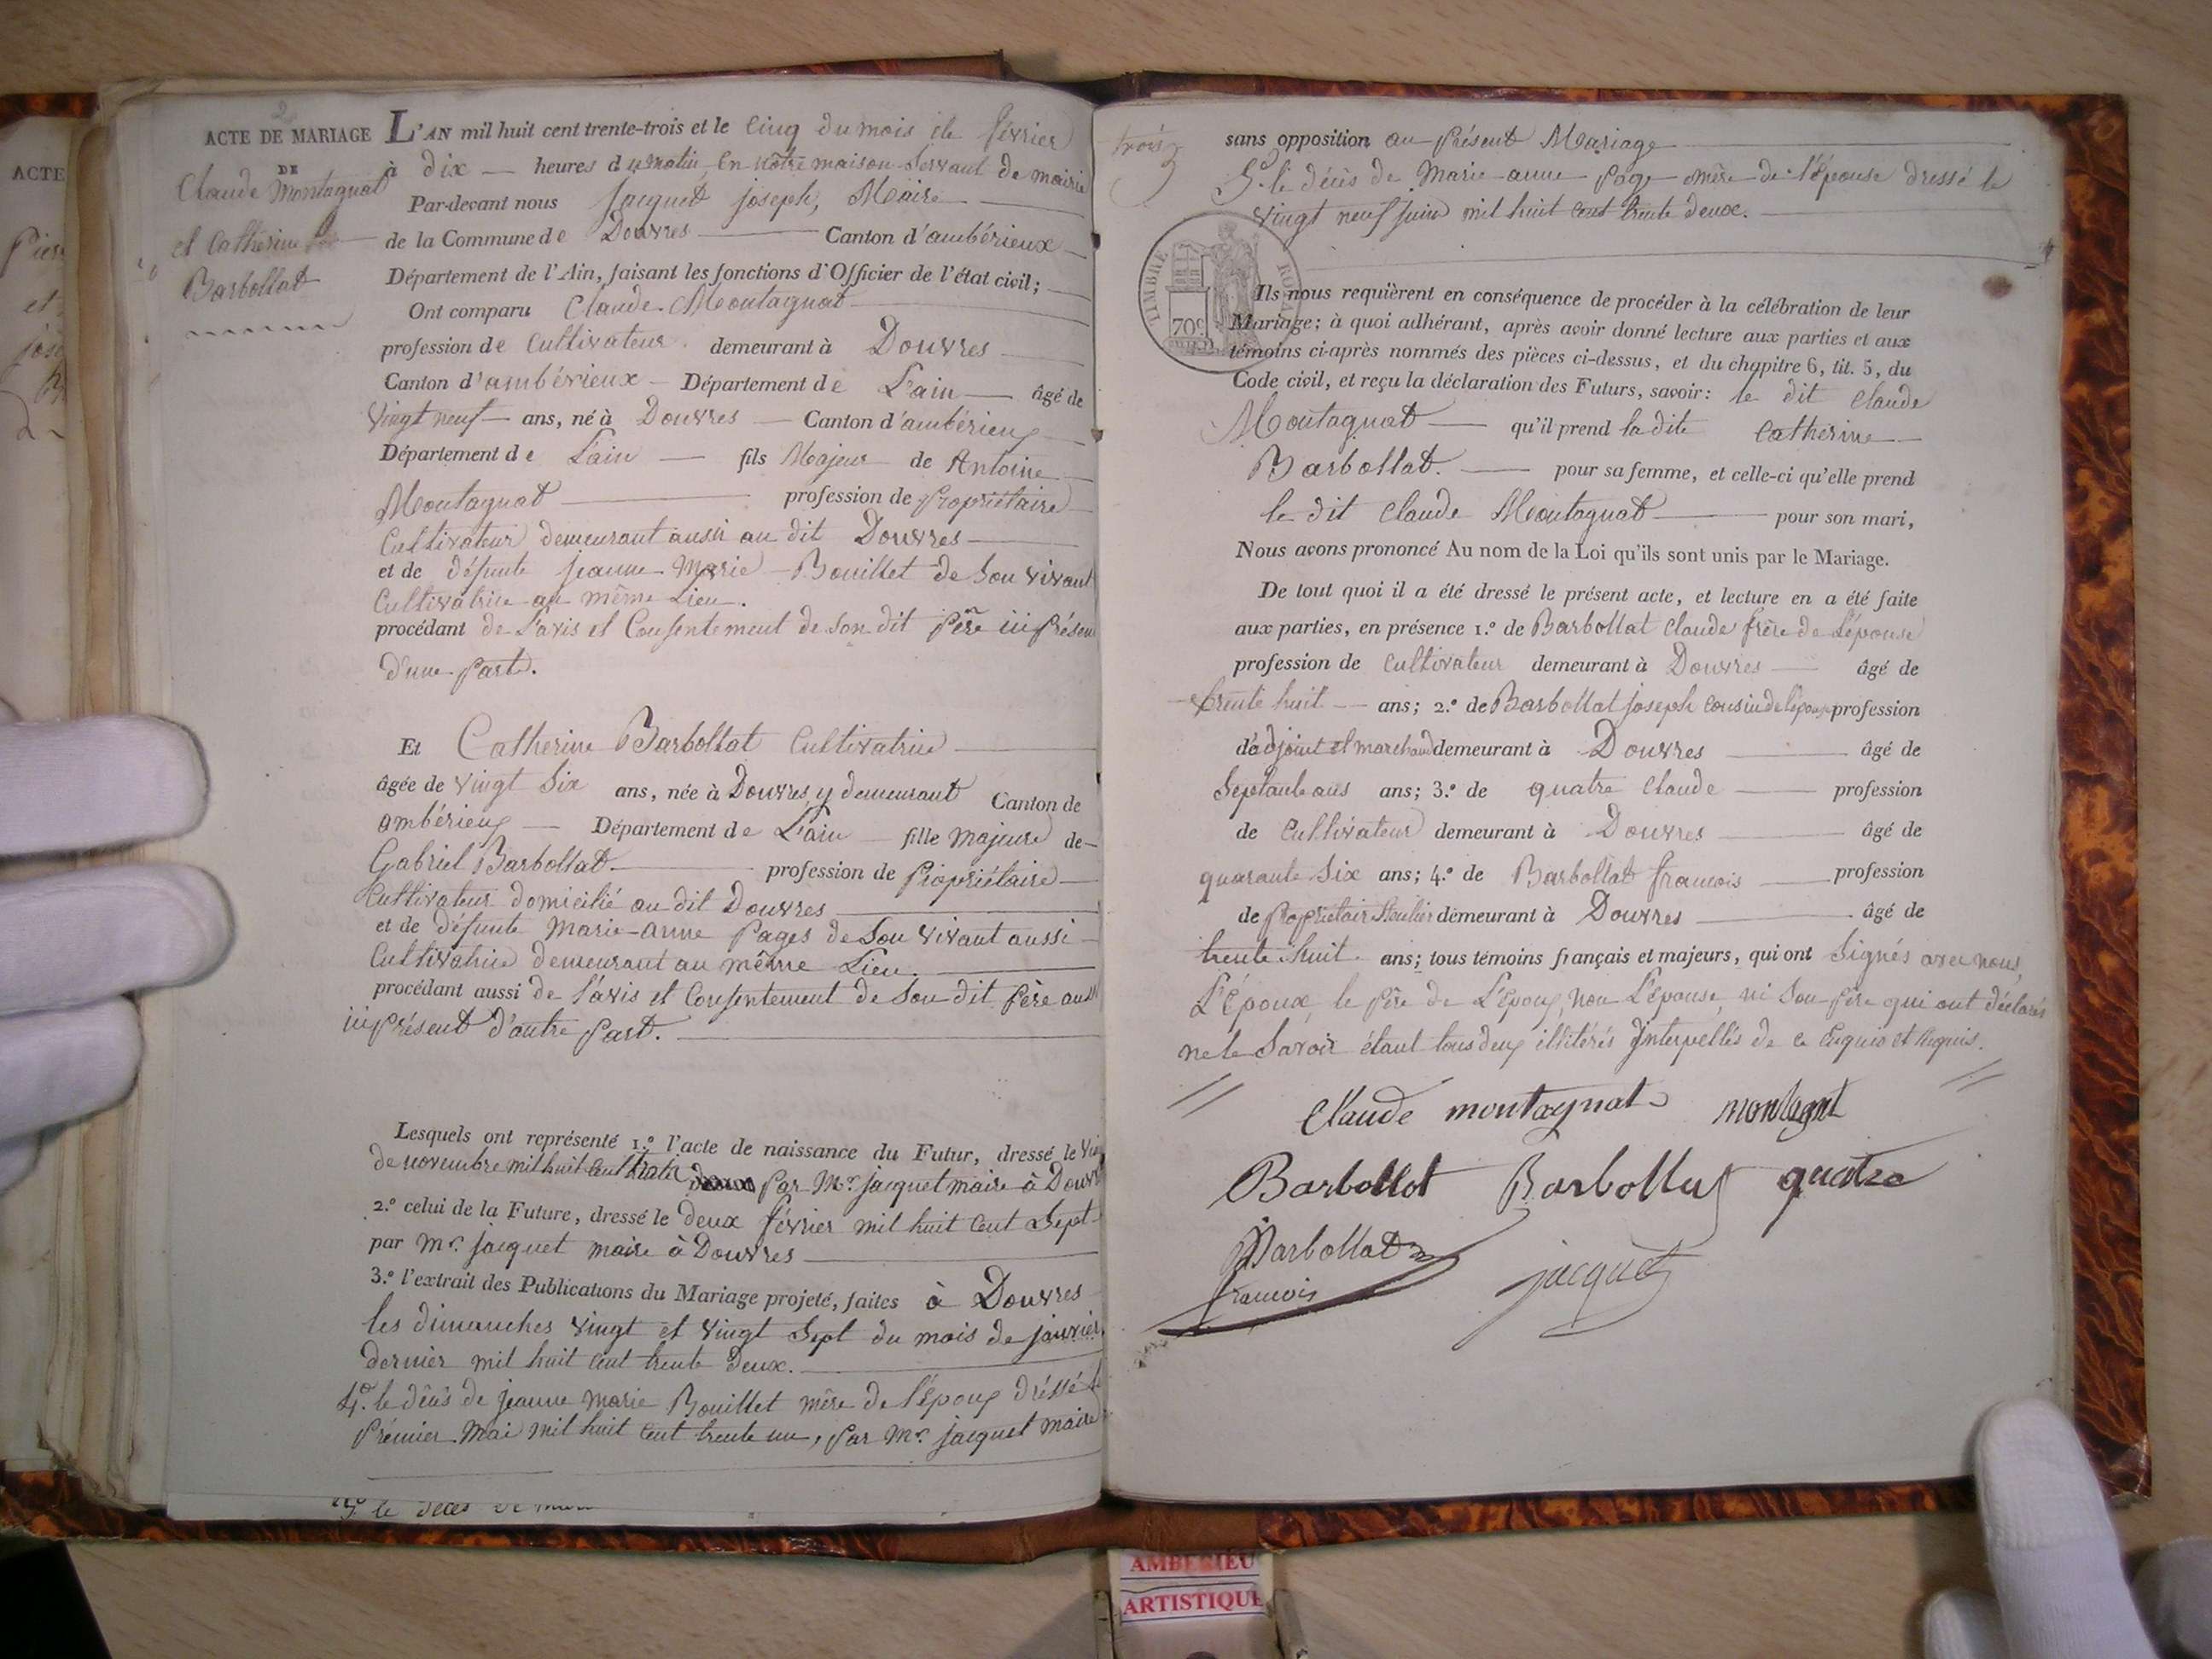 2
ACTE DE MARIAGE
DE
Claude Montagnat
et Catherine
Barbollat
L'AN mil huit cent trente-trois et le cinq du mois de février
à dix heures du matin, en nôtre maison servant de mairie
Par-devant nous Jacquet joseph, Maire
de la Commune de Douvres Canton d'ambérieux
Département de l'Ain, faisant les fonctions d'Officier de l'état civil;
Ont comparu Claude Montagnat
profession de Cultivateur demeurant à Douvres
Canton d'ambérieux Département de L'ain âgé de
vingt neuf ans, né à Douvres Canton d'ambérieux
Département de L'ain fils Majeur de Antoine
Montagnat profession de Propriétaire
Cultivateur demeurant aussi au dit Douvres
et de défunte jeanne Marie Bouillet de son vivant
Cultivatrice au même Lieu.
procédant de l'avis et Consentement de son dit Père ici présen
d'une part.
Et Catherine Barbollat Cultivatrice
âgée de vingt six ans, née à Douvres y demeurant Canton de
ambérieux Département de L'ain fille majeure de
Gabriel Barbollat profession de Propriétaire
Cultivateur domicilié au dit Douvres
et de défunte Marie-anne Pages de son vivant aussi
Cultivatrice demeurant au même Lieu.
procédant aussi de l'avis et Consentement de son dit Père aussi
ici présent d'autre part.
Lesquels ont représenté 1.º l'acte de naissance du Futur, dressé le
de novembre mil huit cent trois par Mr. jacquet maire à Douvr
2.º celui de la Future, dressé le deux février mil huit cent sept
par Mr. jacquet maire à Douvres
3.º l'extrait des Publications du Mariage projeté, faites à Douvres
les dimanches vingt et vingt sept du mois de janvier
dernier mil huit cent trente deux.
4.º le décès de jeanne marie Bouillet mère de l'époux dréssé le
Prémier Mai mil huit cent trente un, par Mr. jacquet maire
5.º le décès de
trois
sans opposition au présent Mariage
5.º le décès de Marie-anne Page mère de l'épouse dressé le
vingt neuf juin mil huit cent trente deux.
TIMBRE ROYAL
70c
Ils nous requièrent en conséquence de procéder à la célébration de leur
Mariage; à quoi adhérant, après avoir donné lecture aux parties et aux
témoins ci-après nommés des pièces ci-dessus, et du chapitre 6, tit. 5, du
Code civil, et reçu la déclaration des Futurs, savoir: le dit Claude
Montagnat qu'il prend la dite Catherine
Barbollat. pour sa femme, et celle-ci qu'elle prend
le dit Claude Montagnat pour son mari,
Nous avons prononcé Au nom de la Loi qu'ils sont unis par le Mariage.
De tout quoi il a été dressé le présent acte, et lecture en a été faite
aux parties, en présence 1.º de Barbollat Claude frère de l'épouse
profession de Cultivateur demeurant à Douvres âgé de
trente huit ans; 2.º de Barbollat joseph cousin de l'épouse profession
d'adjoint et marchand demeurant à Douvres âgé de
Septante ans ans; 3.º de quatre Claude profession
de Cultivateur demeurant à Douvres âgé de
quarante six ans; 4.º de Barbollat francois profession
de Propriétair demeurant à Douvres âgé de
trente huit ans; tous témoins français et majeurs, qui ont signés avec nous,
L'époux, le père de L'époux, non L'épouse, ni son père qui ont déclarés
ne le savoir étant tous deux illitérés Interpellés de ce Enquis et Requis.
Claude montagnat montagnt
Barbollot Barbollat quatre
Barbollat
francois
jacquet
ACTE
AMBERIEU
ARTISTIQUE